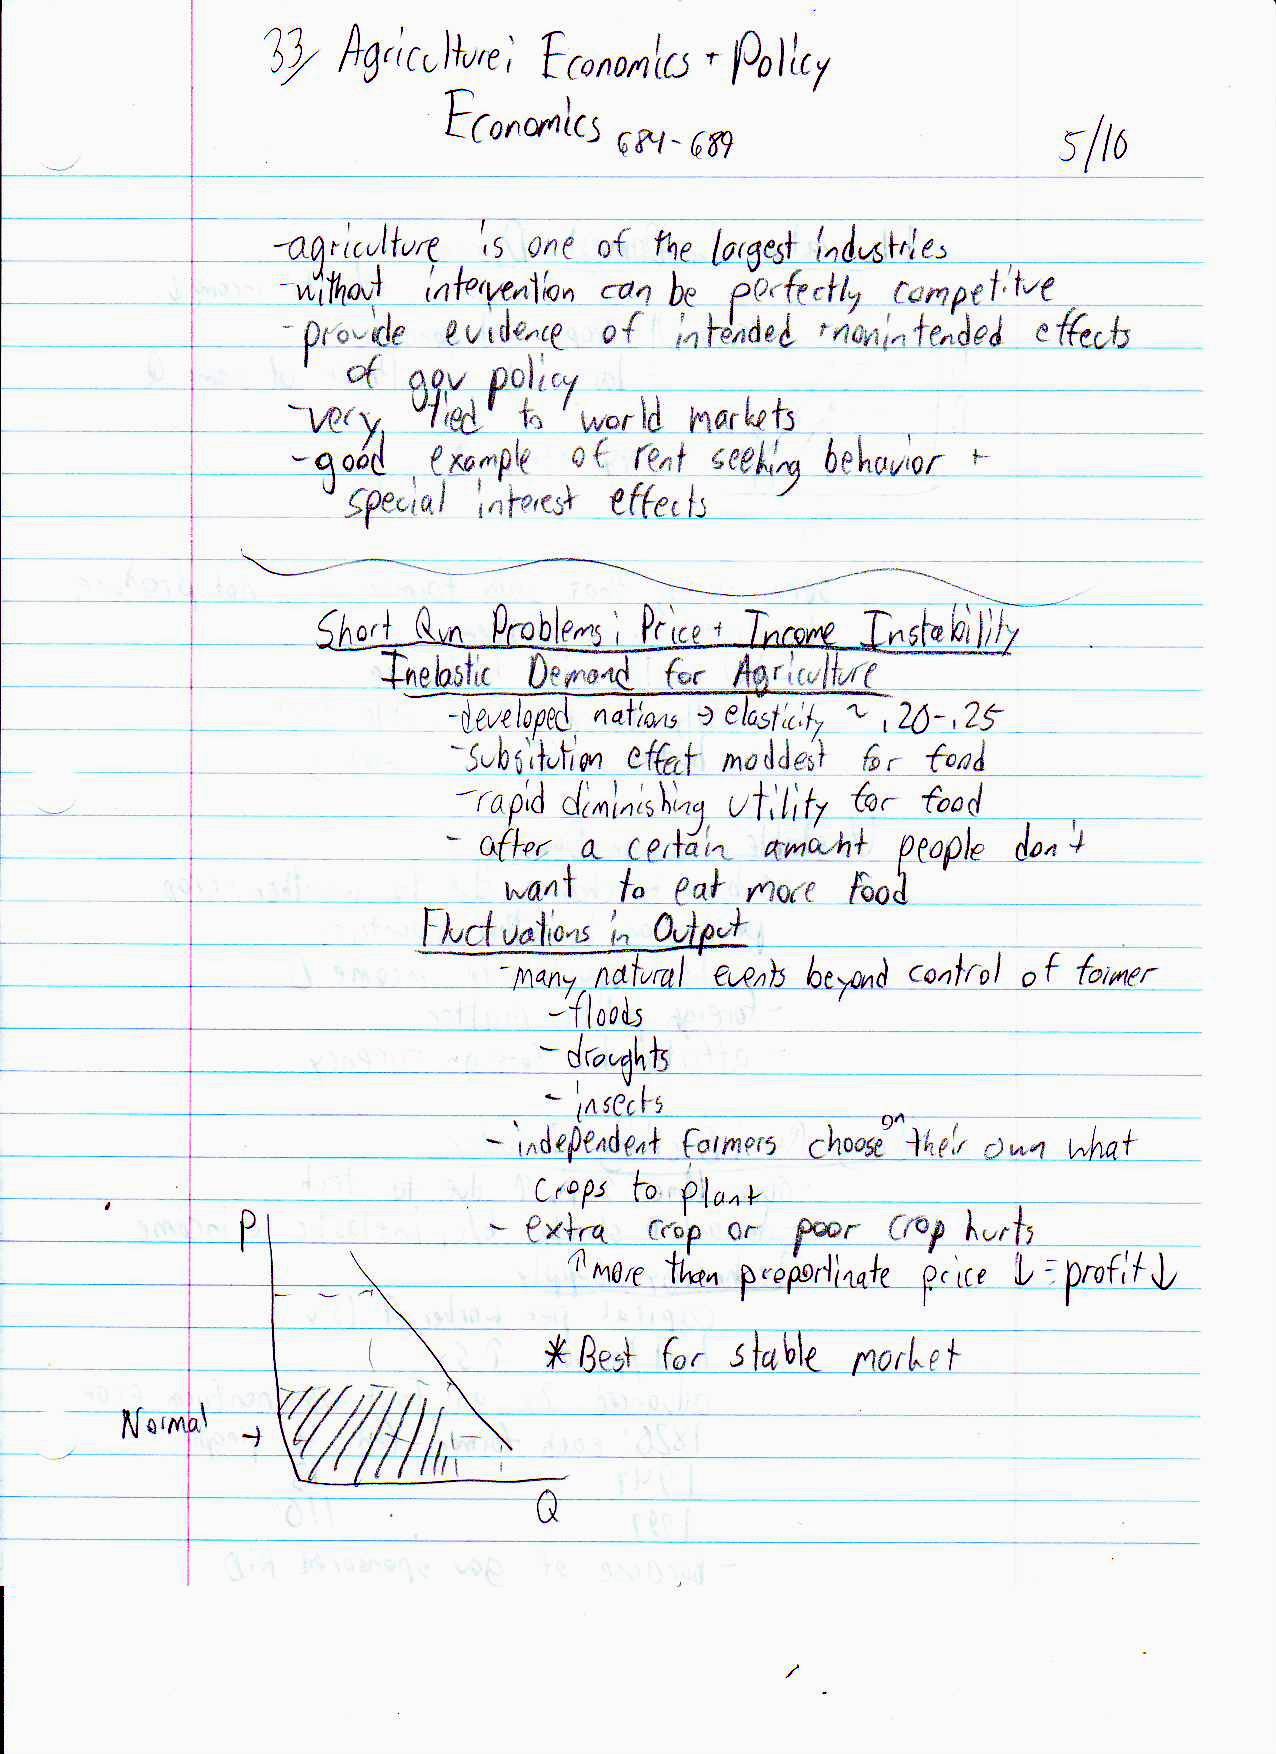 33/ Agriculture; Economics + Policy
Economics 684-689
5/10
-agriculture is one of the largest industries
-without intervention can be perfectly competitve
-provide evidence of intended + nonintended effects
of gov policy
-very tied to world markets
-good example of rent seeking behavior +
special interest effects
Short Run Problems; Price + Income Instability
Inelastic Demand for Agriculture
-developed nations → elasticity ~ .20-.25
-subsitution effect moddest for food
-rapid diminishing utility for food
- after a certain amount people don't
want to eat more food
Fluctuations in Output
-many natural events beyond control of farmer
-floods
-droughts
- insects
- independent farmers choose on their own what
crops to plant
- extra crop or poor crop hurts
↑ more than proportinate price ↓ = profit ↓
* Best for stable market
P
Normal →
Q